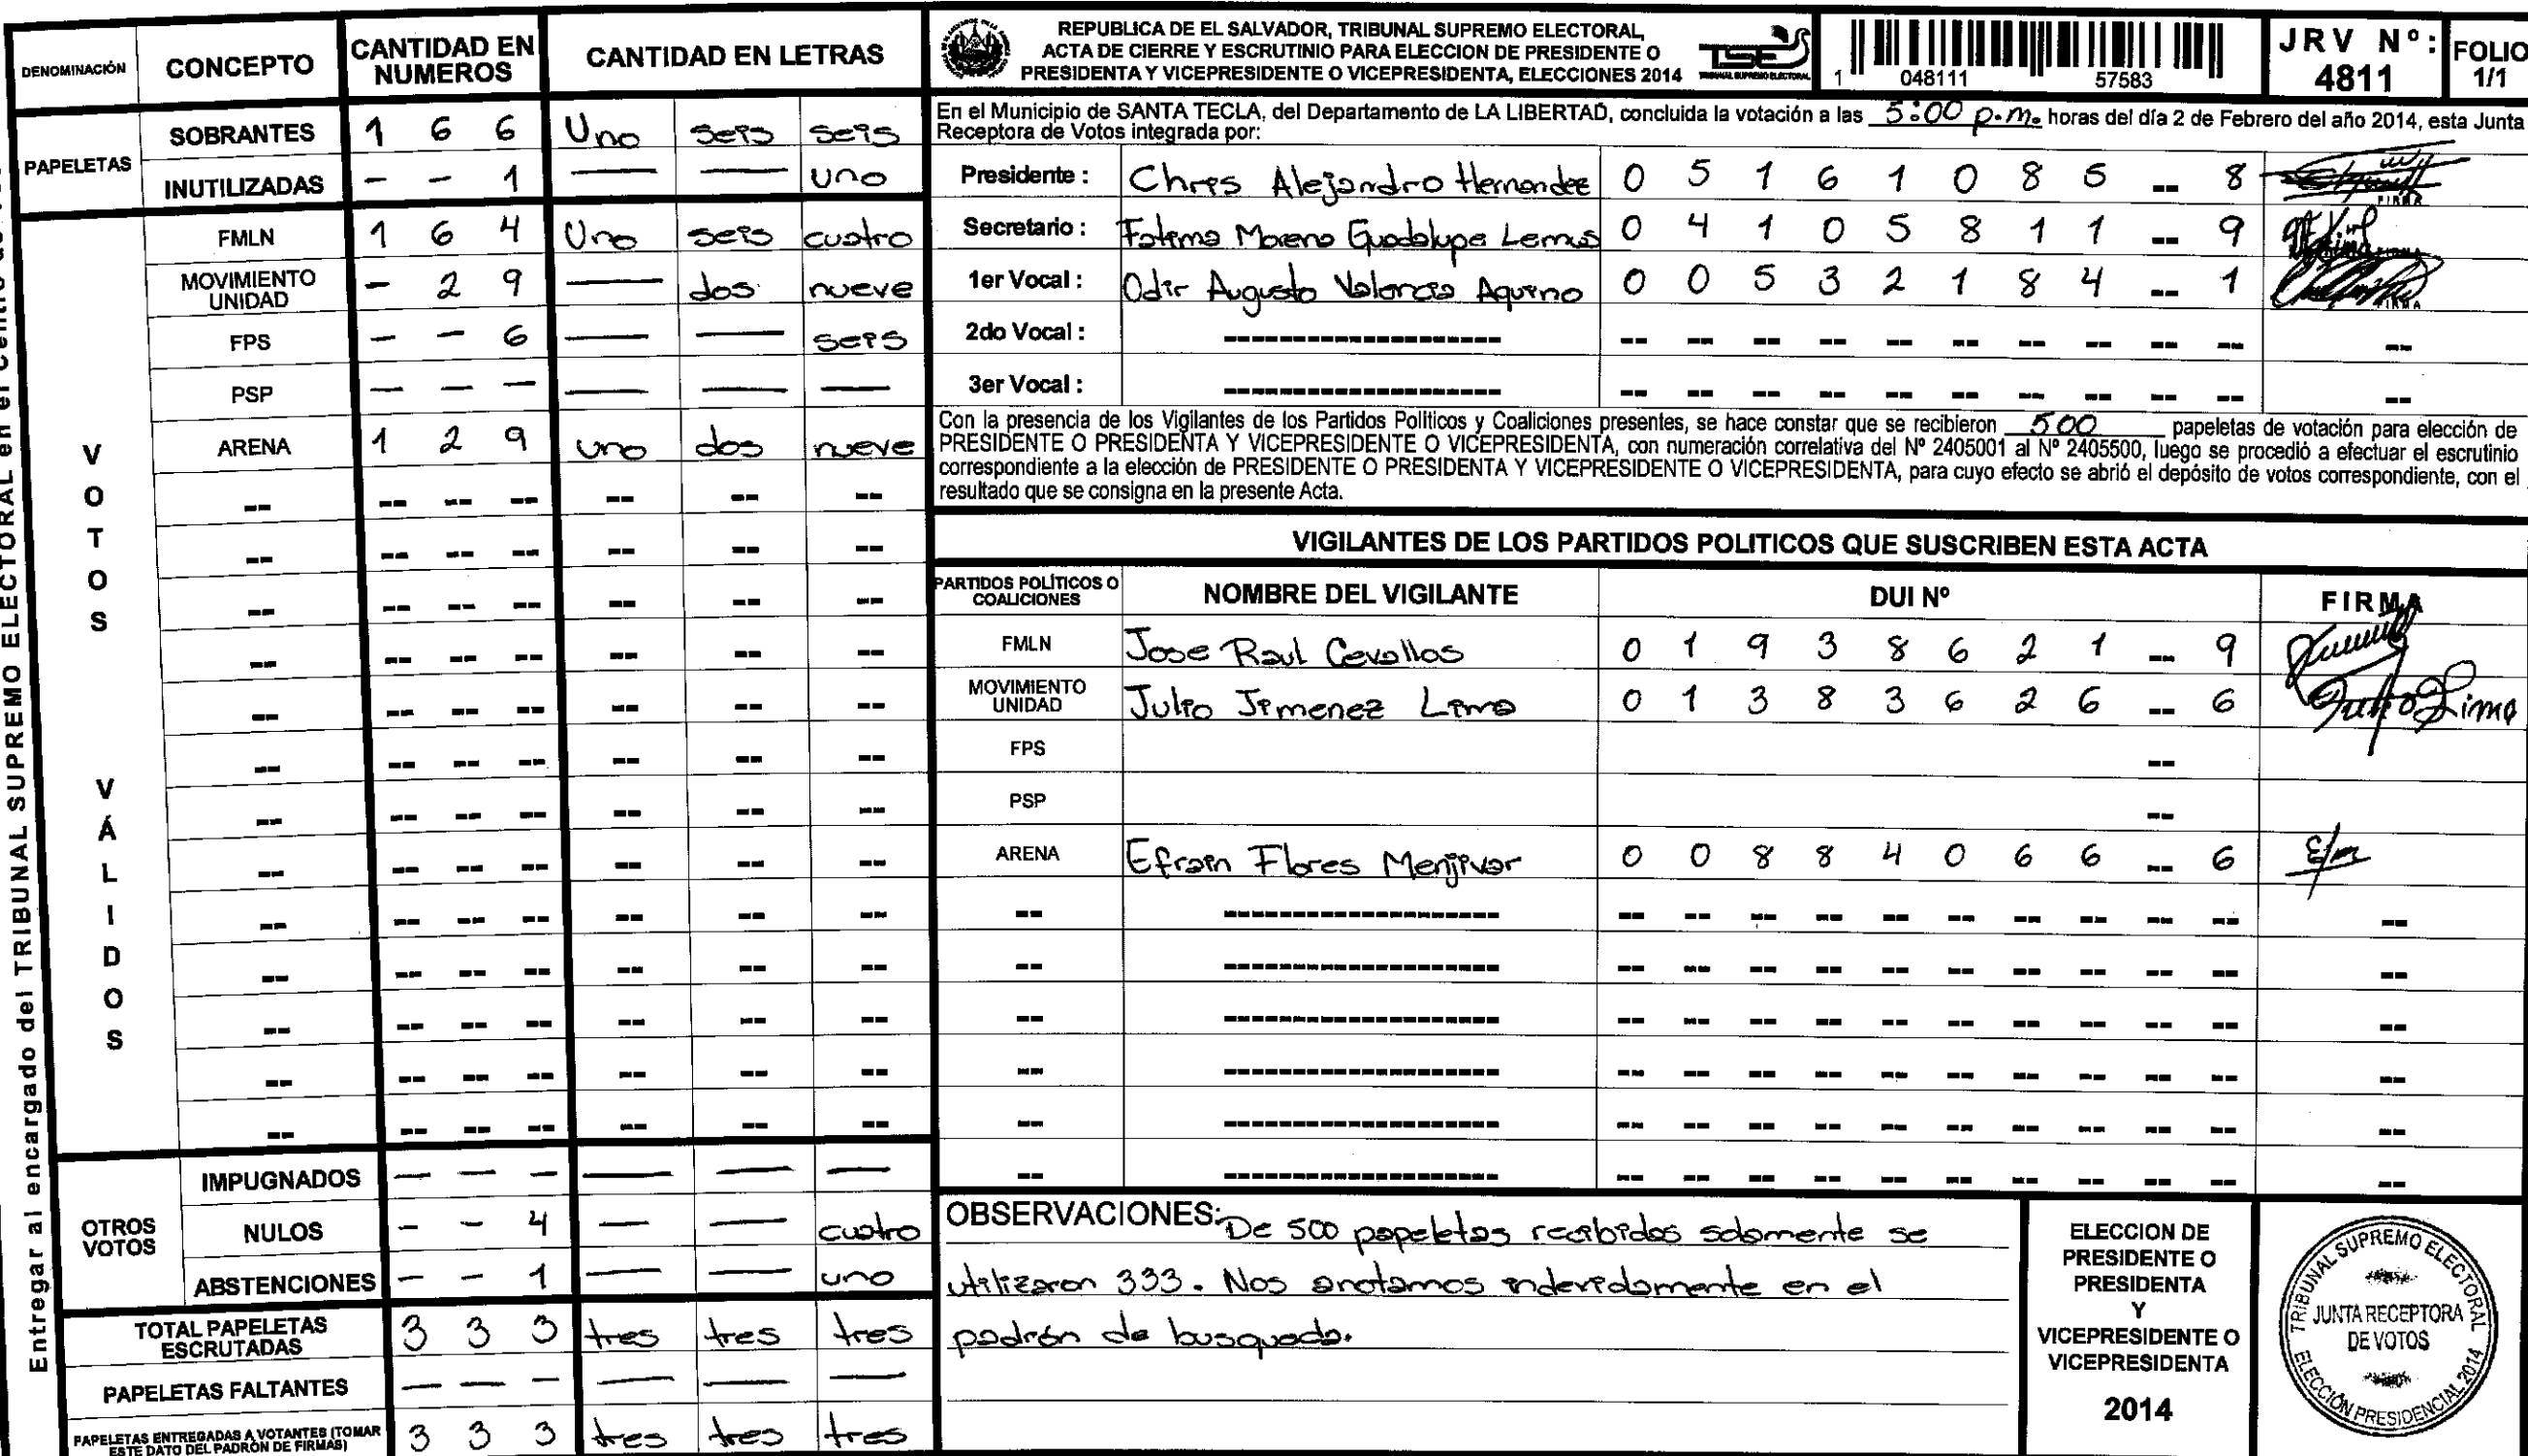 DENOMINACIÓN CONCEPTO CANTIDAD EN NUMEROS CANTIDAD EN LETRAS
PAPELETAS
SOBRANTES 1 6 6 Uno seis seis
INUTILIZADAS - - 1 — — uno
VOTOS VÁLIDOS
FMLN 1 6 4 Uno seis cuatro
MOVIMIENTO UNIDAD - 2 9 — dos nueve
FPS - - 6 — — seis
PSP - - - — — —
ARENA 1 2 9 uno dos nueve
OTROS VOTOS
IMPUGNADOS - - - — — —
NULOS - - 4 — — cuatro
ABSTENCIONES - - 1 — — uno
TOTAL PAPELETAS ESCRUTADAS 3 3 3 tres tres tres
PAPELETAS FALTANTES - - - — — —
PAPELETAS ENTREGADAS A VOTANTES (TOMAR ESTE DATO DEL PADRÓN DE FIRMAS) 3 3 3 tres tres tres
REPUBLICA DE EL SALVADOR, TRIBUNAL SUPREMO ELECTORAL,
ACTA DE CIERRE Y ESCRUTINIO PARA ELECCION DE PRESIDENTE O
PRESIDENTA Y VICEPRESIDENTE O VICEPRESIDENTA, ELECCIONES 2014
TSE
TRIBUNAL SUPREMO ELECTORAL
1 048111 57583
JRV Nº: 4811
FOLIO 1/1
En el Municipio de SANTA TECLA, del Departamento de LA LIBERTAD, concluida la votación a las 5:00 p.m. horas del día 2 de Febrero del año 2014, esta Junta
Receptora de Votos integrada por:
Presidente : Chris Alejandro Hernandez 0 5 1 6 1 0 8 5 -- 8 FIRMA
Secretario : Fatima Moreno Guadalupe Lemus 0 4 1 0 5 8 1 1 -- 9
1er Vocal : Odir Augusto Valencia Aquino 0 0 5 3 2 1 8 4 -- 1 FIRMA
2do Vocal :
3er Vocal :
Con la presencia de los Vigilantes de los Partidos Políticos y Coaliciones presentes, se hace constar que se recibieron 500 papeletas de votación para elección de
PRESIDENTE O PRESIDENTA Y VICEPRESIDENTE O VICEPRESIDENTA, con numeración correlativa del Nº 2405001 al Nº 2405500, luego se procedió a efectuar el escrutinio
correspondiente a la elección de PRESIDENTE O PRESIDENTA Y VICEPRESIDENTE O VICEPRESIDENTA, para cuyo efecto se abrió el depósito de votos correspondiente, con el
resultado que se consigna en la presente Acta.
VIGILANTES DE LOS PARTIDOS POLITICOS QUE SUSCRIBEN ESTA ACTA
PARTIDOS POLÍTICOS O COALICIONES NOMBRE DEL VIGILANTE DUI Nº FIRMA
FMLN Jose Raul Cevallos 0 1 9 3 8 6 2 1 -- 9
MOVIMIENTO UNIDAD Julio Jimenez Lima 0 1 3 8 3 6 2 6 -- 6 Julio Lima
FPS --
PSP --
ARENA Efrain Flores Menjivar 0 0 8 8 4 0 6 6 -- 6
OBSERVACIONES: De 500 papeletas recibidas solamente se
utilizaron 333. Nos anotamos indevidamente en el
padrón de busqueda.
ELECCION DE
PRESIDENTE O
PRESIDENTA
Y
VICEPRESIDENTE O
VICEPRESIDENTA
2014
TRIBUNAL SUPREMO ELECTORAL
JUNTA RECEPTORA
DE VOTOS
ELECCIÓN PRESIDENCIAL 2014
Entregar al encargado del TRIBUNAL SUPREMO ELECTORAL en el